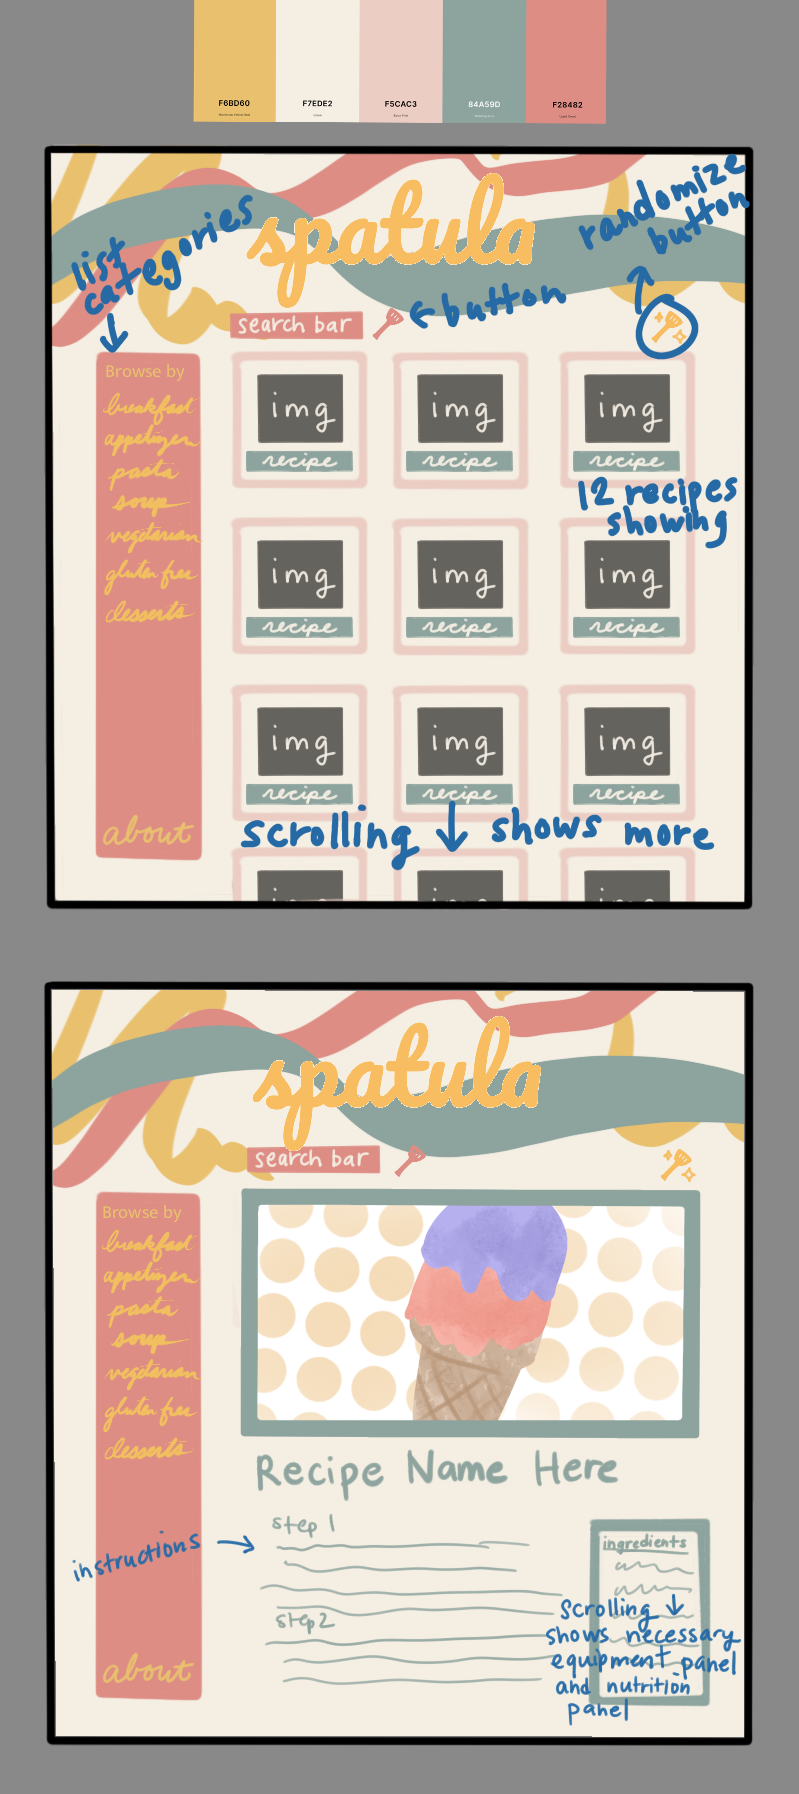 F6BD60
F7EDE2
F5CAC3
84A59D
F28482
randomize
button
list
categories
spatula
search bar
button
Browse by
breakfast
appetizers
pasta
soup
vegetarian
gluten free
desserts
about
img
img
img
recipe
recipe
recipe
12 recipes
showing
img
img
img
recipe
recipe
recipe
img
img
img
recipe
recipe
recipe
scrolling shows more
img
img
img
spatula
search bar
Browse by
breakfast
appetizers
pasta
soup
vegetarian
gluten free
desserts
about
Recipe Name Here
instructions
step 1
step 2
ingredients
Scrolling
shows necessary
equipment panel
and nutrition
panel